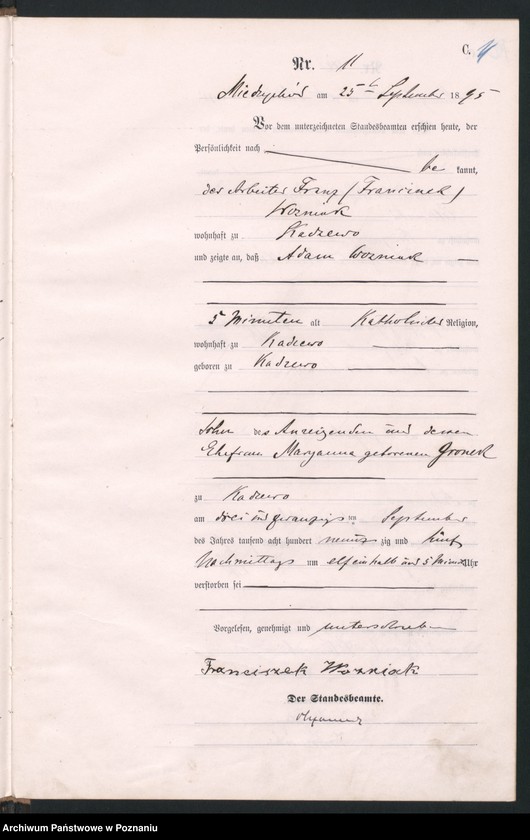 C. 11
Nr. 11
am 25 September 1895
Vor dem unterzeichneten Standesbeamten erschien heute, der
Persönlichkeit nach
be kannt,
der Arbeiter Franz (Franciszek)
Wozniak
wohnhaft zu Kadzewo
und zeigte an, daß Adam Wozniak
5 Minuten alt Katholischer Religion,
wohnhaft zu Kadzewo
geboren zu Kadzewo
Sohn des Anzeigenden und dessen
Ehefrau Maryanna geborenen Gronek
zu Kadzewo
am drei und zwanzigsten September
des Jahres tausend acht hundert neunzig und fünf
Nachmittags um elfeinhalb und 5 Minuten Uhr
verstorben sei
Vorgelesen, genehmigt und unterschrieben
Franciszek Wozniak
Der Standesbeamte.
Archiwum Państwowe w Poznaniu